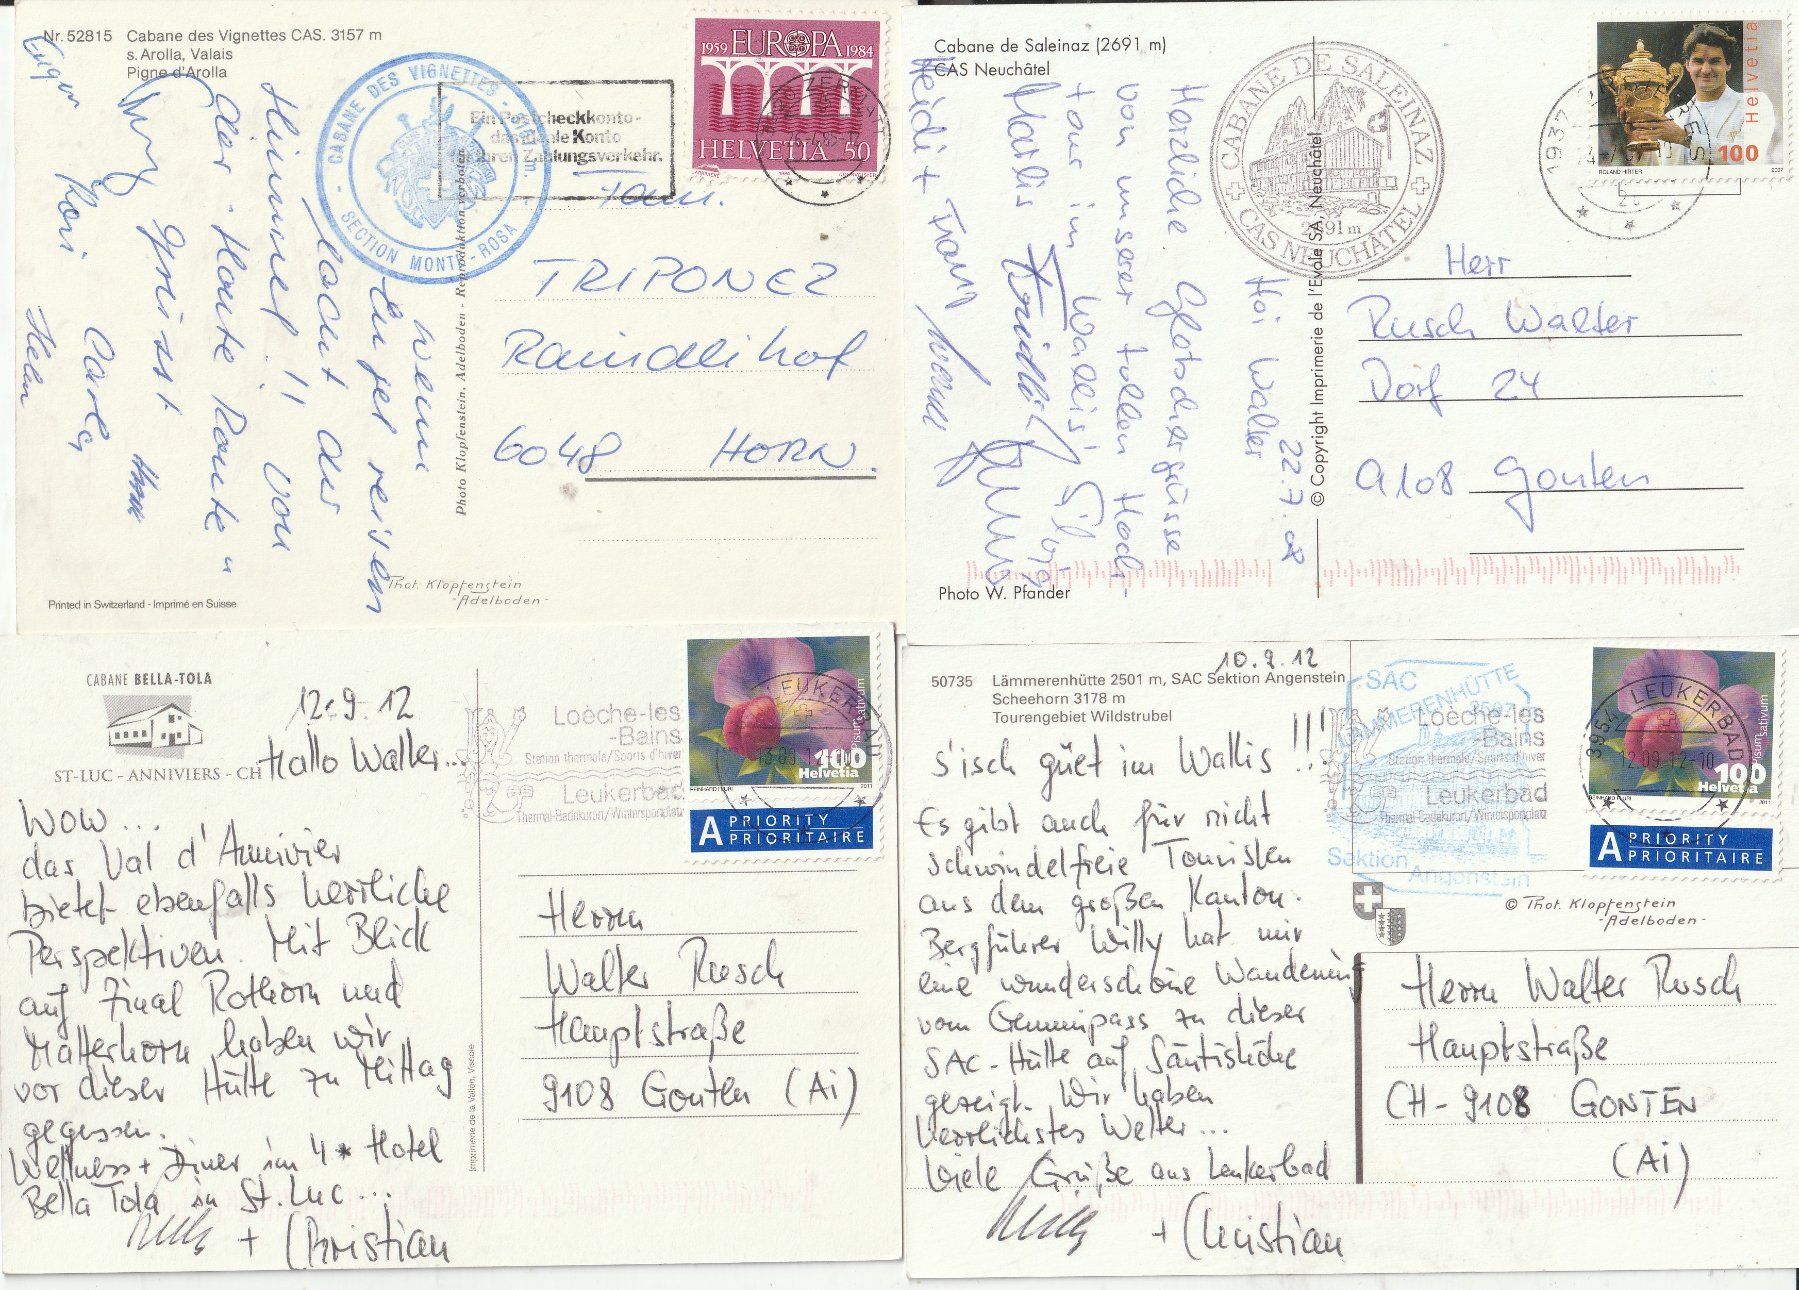 Nr. 52815 Cabane des Vignettes CAS. 3157 m
s. Arolla, Valais
Pigne d'Arolla
CABANE DES VIGNETTES
SECTION MONTE-ROSA
Ein Postcheckkonto-
das ideale Konto
Ihren Zahlungsverkehr.
1959 EUROPA 1984
HELVETIA 50
ZERMATT
Wenn Engel reisen
lacht der
Himmel!! Von
der "Haute Route"
grüsst
Carla
Helen
Fam.
TRIPONEZ
6048 HORN.
Photo Klopfenstein, Adelboden - Reproduktion verboten
Phot. Klopfenstein
-Adelboden-
Printed in Switzerland - Imprimé en Suisse
Cabane de Saleinaz (2691 m)
CAS Neuchâtel
CABANE DE SALEINAZ
2691 m
CAS NEUCHÂTEL
Helvetia
100
ROLAND HIRTER 2007
1937
22.7.08
Hoi Walter
Herzliche Gletschergrüsse
von unserer tollen Hoch-
tour im Wallis!
Marlis
Heidi + Franz
Herr
Rusch Walter
Dorf 24
9108 Gonten
© Copyright Imprimerie de l'Evole SA, Neuchâtel
Photo W. Pfander
CABANE BELLA-TOLA
ST-LUC - ANNIVIERS - CH
12.9.12
Hallo Walter...
WOW...
das Val d'Annivier
bietet ebenfalls herrliche
Perspektiven. Mit Blick
auf Zinal Rothorn und
Matterhorn haben wir
vor dieser Hütte zu Mittag
gegessen.
Wellness + Diner im 4* Hotel
Bella Tola in St. Luc...
Willy + Christian
Loèche-les
-Bains
Station thermale/Sports d'hiver
Leukerbad
Thermal-Badekurort/Wintersportplatz
LEUKERBAD
Pisum sativum
100
Helvetia
2011
A PRIORITY
PRIORITAIRE
Herrn
Walter Rusch
Hauptstraße
9108 Gonten (Ai)
Imprimerie de la Vallée, Vissoie
10.9.12
50735 Lämmerenhütte 2501 m, SAC Sektion Angenstein
Scheehorn 3178 m
Tourengebiet Wildstrubel
S'isch güet im Wallis!!!
Es gibt auch für nicht
schwindelfreie Touristen
aus dem großen Kanton.
Bergführer Willy hat mir
eine wunderschöne Wanderung
vom Gemmipass zu dieser
SAC-Hütte auf Säntishöhe
gezeigt. Wir haben
herrlichstes Wetter...
Viele Grüße aus Leukerbad
Willy + Christian
SAC
LÄMMERENHÜTTE
Sektion
Angenstein
Loèche-les
-Bains
Station thermale/Sports d'hiver
Leukerbad
Thermal-Badekurort/Wintersportplatz
3954 LEUKERBAD
12-09-12-10
Pisum sativum
100
Helvetia
2011
A PRIORITY
PRIORITAIRE
© Phot. Klopfenstein
-Adelboden-
Herrn Walter Rusch
Hauptstraße
CH-9108 GONTEN
(Ai)